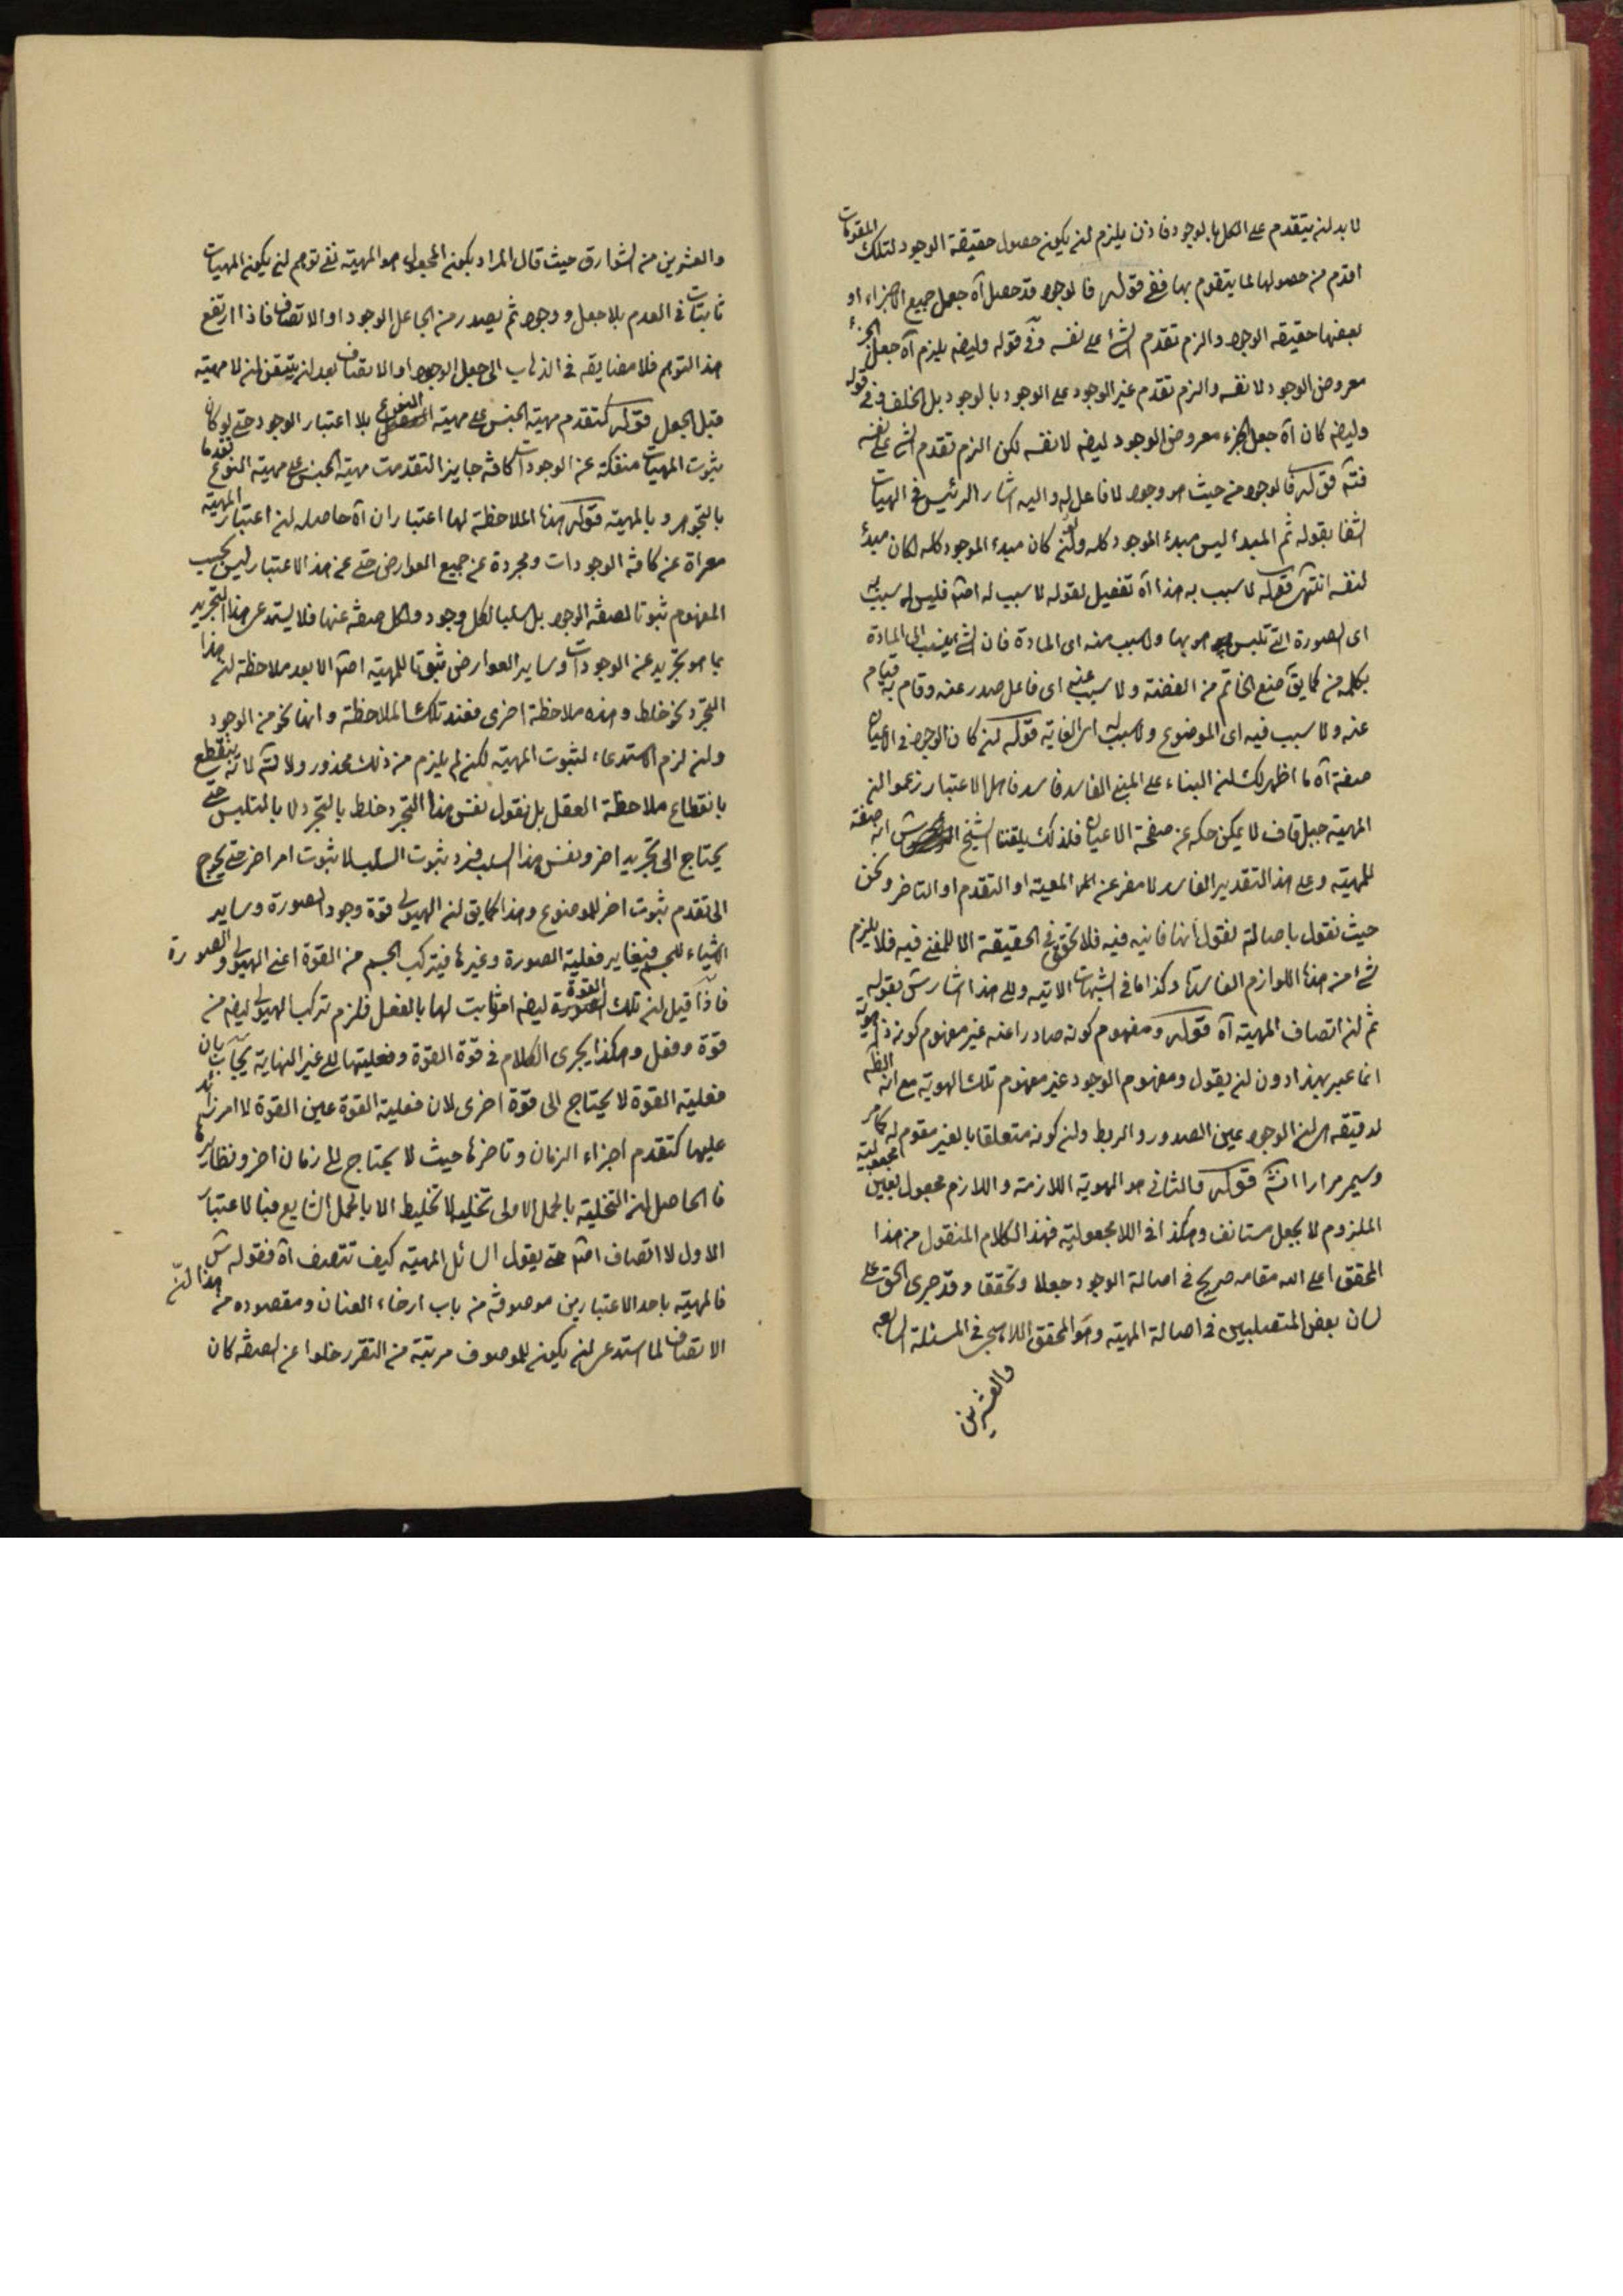 لا بد لنه يتقدم على الكل بالوجود فاذن يلزم لنه يكونه حصول حقيقة الوجود لتلك المقومات
اقدم منه حصولها لما يتقوم بها ففى قوله فالوجود قد حصل آه جعل جميع الاجزاء او
بعضها حقيقة الوجود والزم تقدم الشئ على نفسه وفى قوله وايضه يلزم آه جعل الجزء
معروض الوجود لا نفسه والزم تقدم غير الوجود على الوجود بالوجود بل الخلف وفى قوله
وايضه كان آه جعل الجزء معروض الوجود ايضه لا نفسه لكن الزم تقدم الشئ على نفسه
فتم قوله فالوجود منه حيث هو وجود لا فاعل له واليه اشار الرئيس فى الهيات
الشفا بقوله ثم المبدء ليس مبدء الموجود كله ولنه كان مبدء الموجود كله لكان مبدء
لنفسه انتهى قوله لا سبب به هذا آه تفصيل لقوله لا سبب له اصلا فليس له سبب به
اى الصورة التى تلبس هو بها ولا سبب منه اى المادة فان الشئ ينسب الى المادة
بكلمة من كما يق صنع الخاتم من الفضة ولا سبب عنه اى فاعل صدر عنه وقام به قيام
عنه ولا سبب فيه اى الموضوع ولا سبب له اى الغاية قوله لنه كان الوجود فى الاعيان
صفة آه ما اظهر لك لنه البناء على المبنى الفاسد فاسد فاهل الاعتبار زعموا لنه
المهية جبل قاف لا يمكن حكه عن صفحة الاعيان فلذلك يلقننا الشيخ انه صفة
للمهية وعلى هذا التقدير الفاسد لا مفر عن المعية او التقدم او التاخر ونحن
حيث نقول باصالته نقول انها فانيه فيه فلا تحقق فى الحقيقة الا للمفنى فيه فلا يلزم
شئ منه هذه اللوازم الفاسدة وكذا ما فى الشبهات الاتيه والى هذا اشار ش بقوله
ثم لنه اتصاف المهية آه قوله ومفهوم كونه صادرا عنه غير مفهوم كونه ذا هوية
انما عبر بهذا دون لنه يقول ومفهوم الوجود غير مفهوم تلك الهوية مع انه الظاهر
لدقيقة هى لنه الوجود عين الصدور والربط ولنه كونه متعلقا بالغير مقوم له كما مر
وسيمر مرارا انشه قوله فالثانى هو الهوية اللازمة واللازم مجعول بعين مجعولية
الملزوم لا بجعل مستانف وهكذا فى اللامجعولية فهذا الكلام المنقول منه هذا
المحقق اعلى الله مقامه صريح فى اصالة الوجود جعلا وتحققا وقد جرى الحق على
لسان بعض المتصلبين فى اصالة المهية وهو المحقق اللاهيجى فى المسئلة السابعه
والعشرين
والعشرين منه الشوارق حيث قال المراد بكونه المجعول هو المهية نفى توهم لنه يكونه المهيات
ثابتات فى العدم بلا جعل ووجود ثم يصدر منه الجاعل الوجود او الاتصاف فاذا ارتفع
هذا التوهم فلا مضايقه فى الذهاب الى جعل الوجود او الاتصاف بعد لنه يتيقن لنه لا مهية
قبل الجعل قوله كتقدم مهية الجنس على مهية النوع بلا اعتبار الوجود حتى لو كان
ثبوت المهيات منفكة عن الوجودات كافة جايزا لتقدمت مهية الجنس على مهية النوع تقدما
بالتجوهر وبالمهية قوله هذه الملاحظة لها اعتباران آه حاصله لنه اعتبار المهية
معراة عن كافة الوجودات ومجردة عن جميع العوارض حتى عن هذا الاعتبار ليس بحسب
المفهوم ثبوتا لصفة الوجود بل سلبا لكل وجود ولكل صفة عنها فلا يستدعى هذا التجريد
بما هو تجريد عن الوجودات وساير العوارض ثبوتا للمهية اصلا الا بعد ملاحظة لنه هذا
التجرد نحو خلط وهذه ملاحظة اخرى فعند تلك الملاحظة وانها نحو من الوجود
ولنه لزم الاستدعاء لثبوت المهية لكنه لم يلزم من ذلك محذور ولا لتم لما له ينقطع
بانقطاع ملاحظة العقل بل نقول نفس هذا التجرد خلط بالتجرد لا بالتلبس حتى
يحتاج الى تجريد اخر ونفس هذا السلب فرد ثبوت السلب لا ثبوت امر اخر حتى يحوج
الى تقدم ثبوت اخر للموضوع وهذا كما يق لنه الهيولى قوة وجود الصورة وساير
الاشياء للجسم فيغاير فعلية الصورة وغيرها فيتركب الجسم منه القوة اعنى الهيولى والصورة
فاذا قيل لنه تلك القوة ايضه امر ثابت لها بالفعل فلزم تركب الهيولى ايضه منه
قوة وفعل وهكذا يجرى الكلام فى قوة القوة وفعليتها الى غير النهاية يجاب بان
فعلية القوة لا يحتاج الى قوة اخرى لان فعلية القوة عين القوة لا امر زائد
عليها كتقدم اجزاء الزمان وتاخرها حيث لا يحتاج الى زمان اخر ونظايرها
فالحاصل لنه التخلية بالحمل الاولى تخلية لا تخليط الا بالحمل الشايع فبالاعتبار
الاول لا اتصاف اصلا حتى يقول السائل المهية كيف تتصف آه فقوله ش
فالمهية باحد الاعتبارين موصوفة من باب ارخاء العنان ومقصوده من هذا لنه
الاتصاف لما استدعى لنه يكونه للموصوف مرتبة منه التقرر خلوا عن الصفة كان